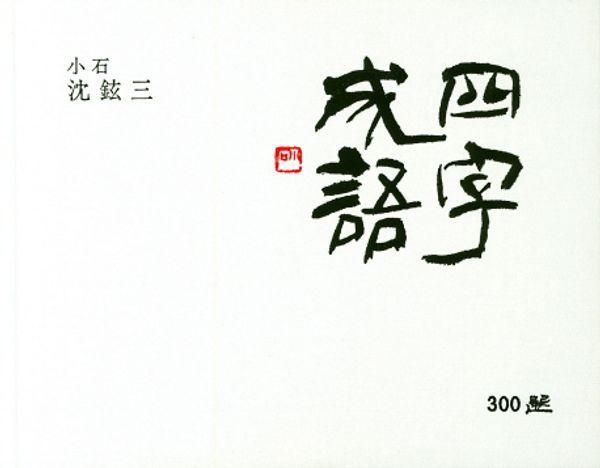 小石
沈鉉三
四字
成語
300選